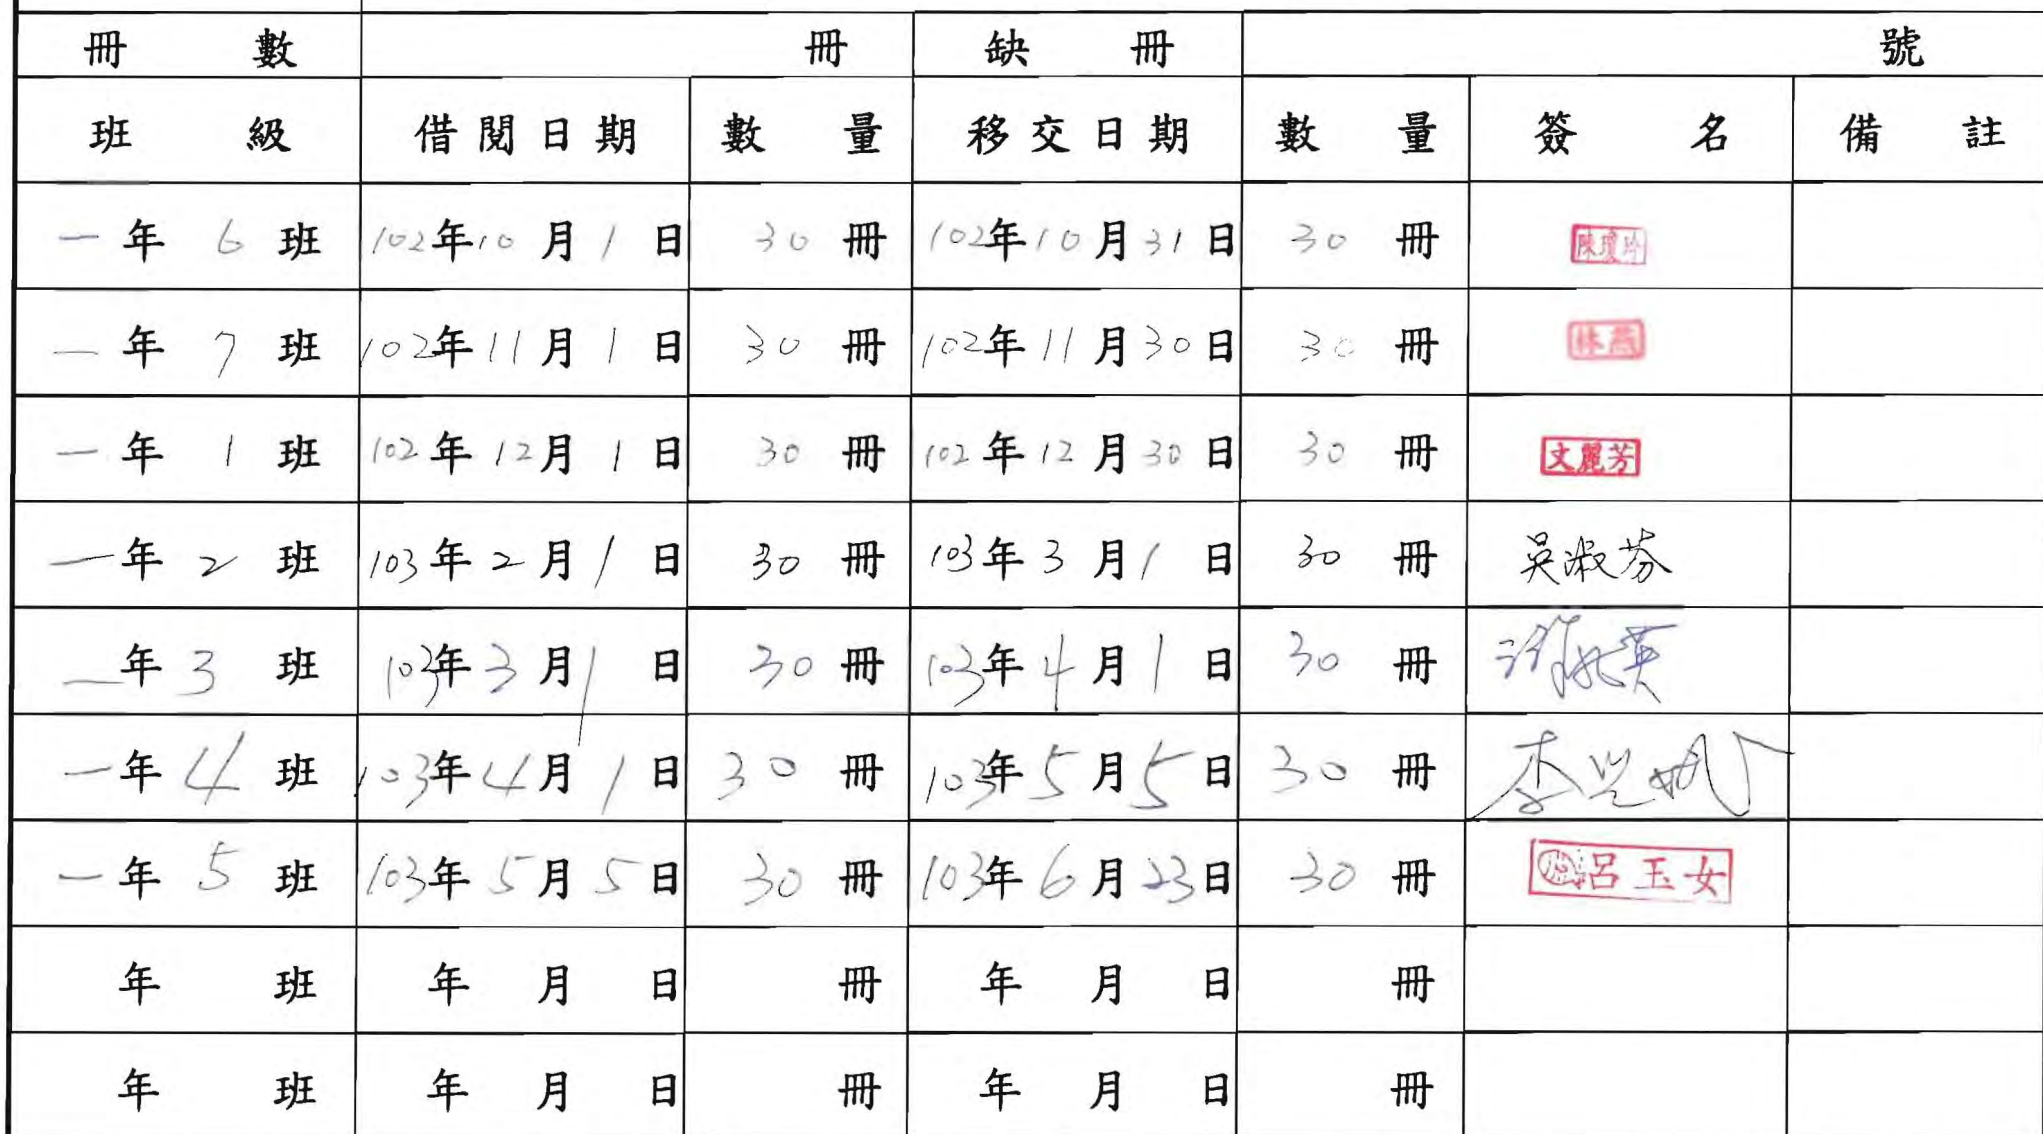 冊數 冊 缺冊 號
班級 借閱日期 數量 移交日期 數量 簽名 備註
一年6班 102年10月1日 30冊 102年10月31日 30冊 陳瓊玲
一年7班 102年11月1日 30冊 102年11月30日 30冊 林燕
一年1班 102年12月1日 30冊 102年12月30日 30冊 文麗芳
一年2班 103年2月1日 30冊 103年3月1日 30冊 吳淑芬
一年3班 103年3月1日 30冊 103年4月1日 30冊
一年4班 103年4月1日 30冊 103年5月5日 30冊 李
一年5班 103年5月5日 30冊 103年6月23日 30冊 呂玉女
年 班 年 月 日 冊 年 月 日 冊
年 班 年 月 日 冊 年 月 日 冊